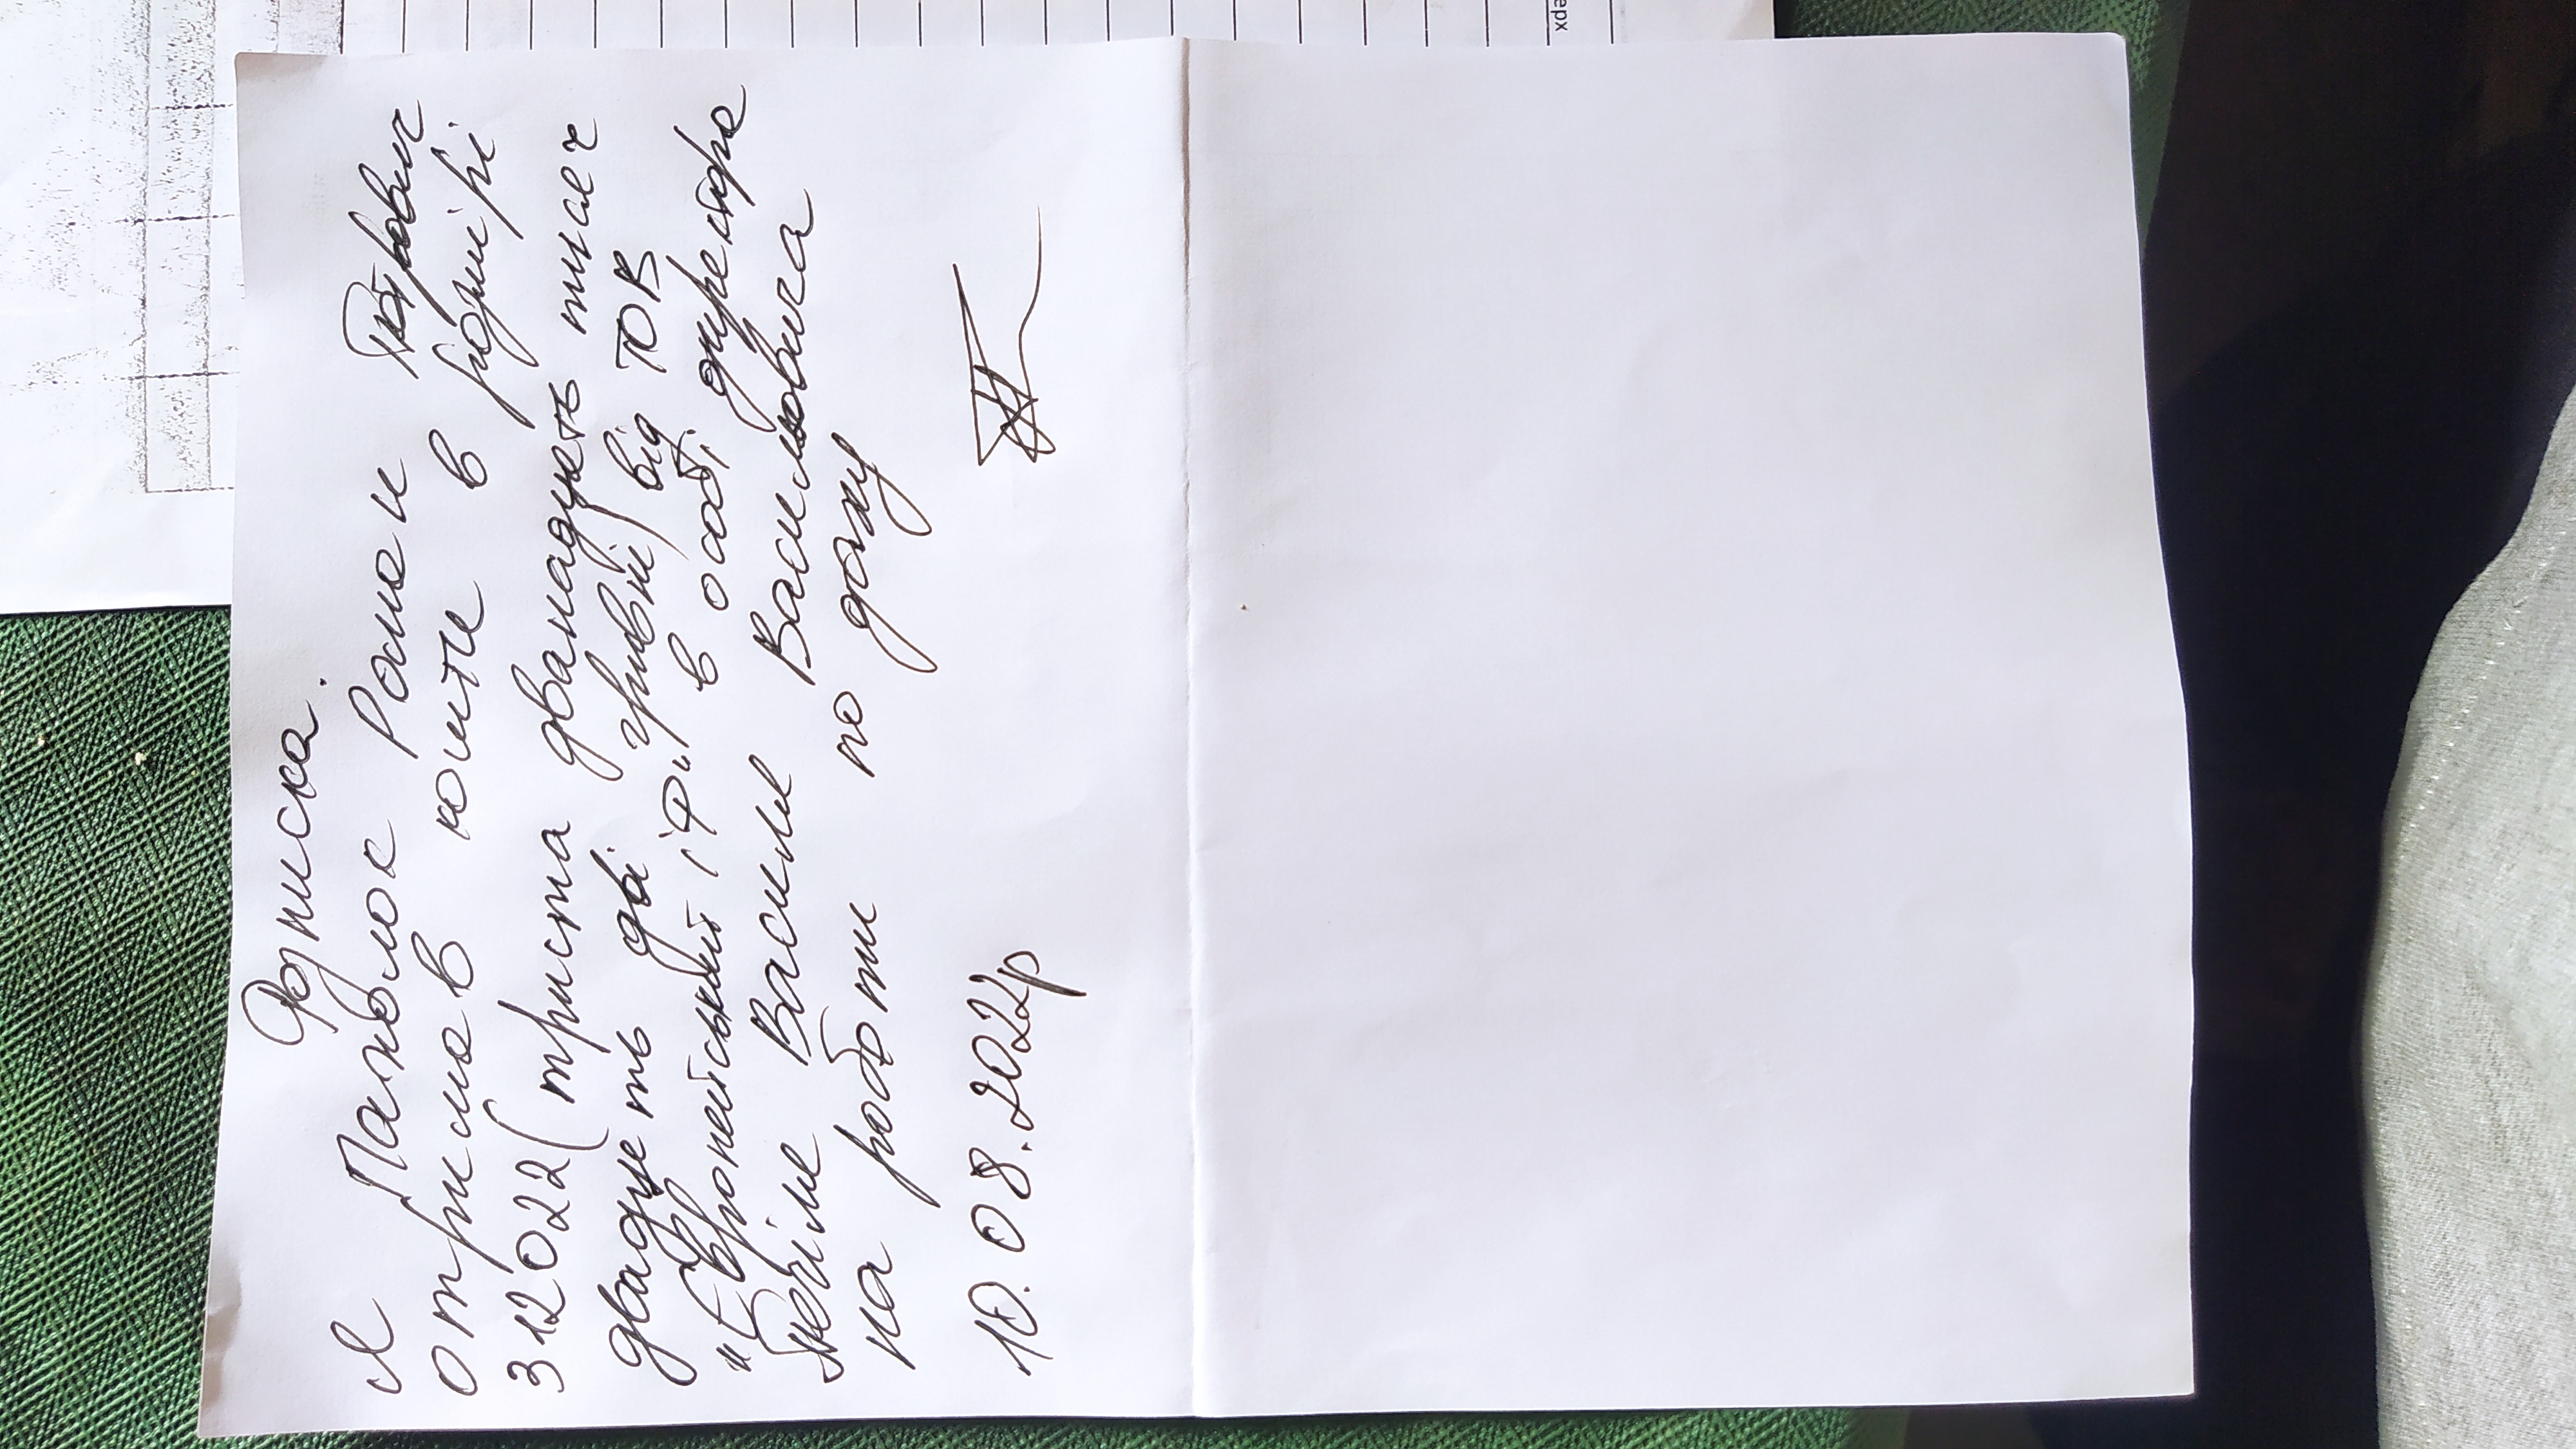 Розписка.
Я Пахолок Роман Петрович
отримав кошти в розмірі
312022 (триста дванадцять тисяч
двадцять дві гривні) від ТОВ
"Європейський ІР" в особі директора
Василя Васильовича
на роботи по даху
10.08.2022р
ерх